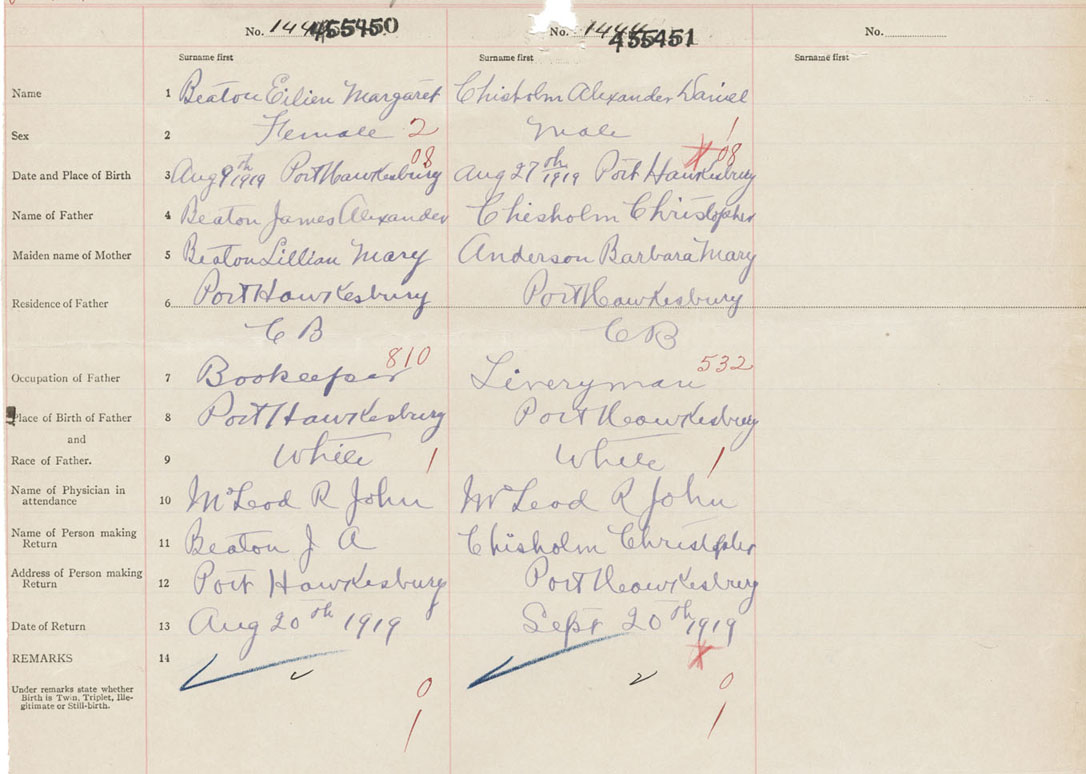 No. 455450 No. 455451 No.
Surname first Surname first Surname first
Name 1 Beaton Eilien Margaret Chisholm Alexander Daniel
Sex 2 Female 2 Male 1
08 08
Date and Place of Birth 3 Aug 9th 1919 Port Hawkesbury Aug 27th 1919 Port Hawkesbury
Name of Father 4 Beaton James Alexander Chisholm Christopher
Maiden name of Mother 5 Beaton Lillian Mary Anderson Barbara Mary
Residence of Father 6 Port Hawkesbury Port Hawkesbury
C B C B
810 532
Occupation of Father 7 Bookeeper Liveryman
Place of Birth of Father 8 Port Hawkesbury Port Hawkesbury
and
Race of Father. 9 White 1 White 1
Name of Physician in
attendance 10 McLeod R John McLeod R John
Name of Person making
Return 11 Beaton J A Chisholm Christopher
Address of Person making
Return 12 Port Hawkesbury Port Hawkesbury
Date of Return 13 Aug 20th 1919 Sept 20th 1919
REMARKS 14
Under remarks state whether
Birth is Twin, Triplet, Ille-
gitimate or Still-birth.
0 0
1 1